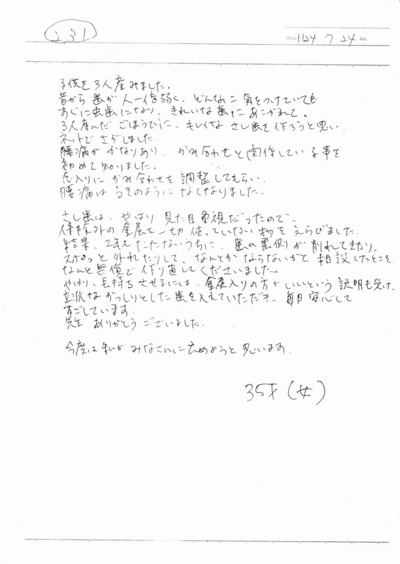 231
H24 7.24
子供を3人産みました。
昔から歯が人一倍弱く、どんなに気をつけていても
すぐに虫歯になり、きれいな歯にあこがれて。
3人産んだごほうびに、キレイなさし歯を作ろうと思い
ネットでさがしました。
腰痛がかなりあり、かみ合わせと関係している事を
初めて知りました。
念入りにかみ合わせを調整してもらい、
腰痛はうそのようになくなりました。
さし歯は、やはり見た目重視だったので、
保険外の金属を一切使っていない物をえらびました。
結果、2年もたたないうちに、歯の裏側が削れてきたり、
スポッと外れたりして、なんとかならないかと相談したところ
なんと無償で作り直してくださいました。
やはり、長持ちさせるには、金属入りの方がいいという説明も受け、
立派ながっしりとした歯を入れていただき、毎日安心して
すごしています。
先生ありがとうございました。
今度は私がみなさんに広めようと思います。
35才(女)